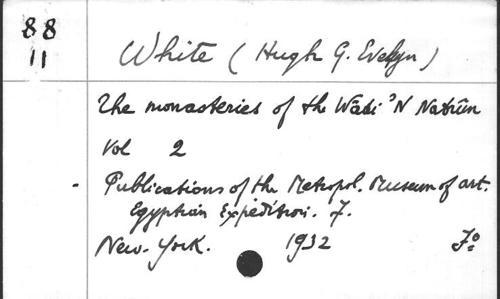 88
11
White ( Hugh G. Evelyn )
The monasteries of the Wādi 'N Natrūn
Vol 2
- Publications of the Metropol. Museum of art.
Egyptian Expedition. 7.
New-York. 1932 Fo